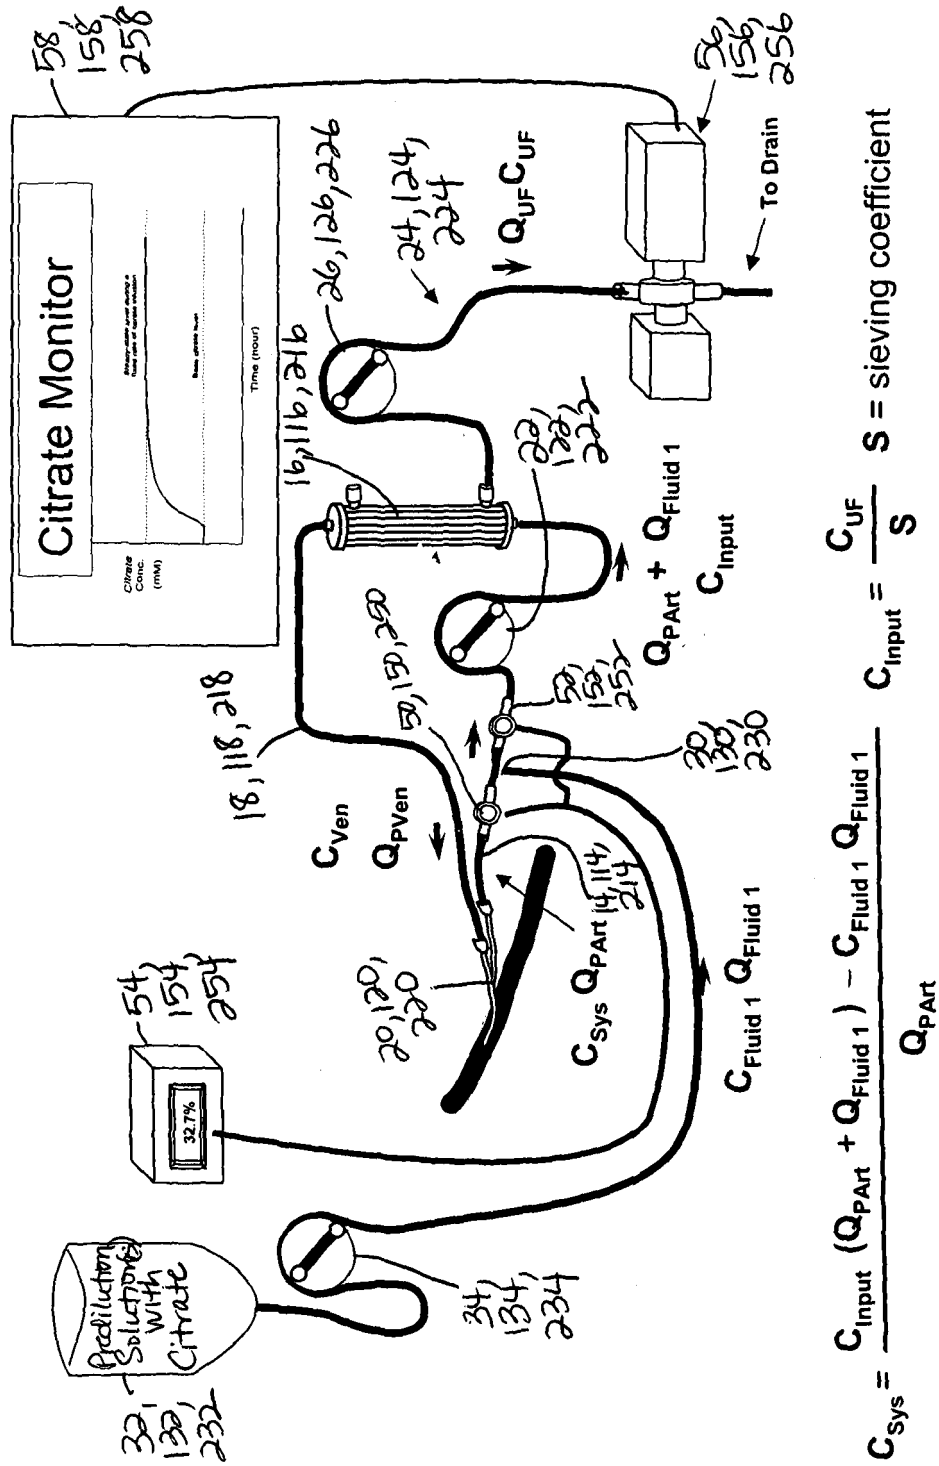 58,
158,
258
Citrate Monitor
Citrate
Conc.
(mM)
Time (hour)
56,
156,
256
To Drain
26, 126, 226
24, 124,
224
Q_UF C_UF
16, 116, 216
22,
122,
222
Q_PArt + Q_Fluid 1
C_Input
18, 118, 218
50, 150, 250
52,
152,
252
30,
130,
230
C_Ven
Q_PVen
20, 120,
220
14, 114,
214
C_Sys Q_PArt
C_Fluid 1 Q_Fluid 1
54,
154,
254
32.7%
Predilution
Solutions
With
Citrate
32,
132,
232
34,
134,
234
C_Sys = C_Input (Q_PArt + Q_Fluid 1) − C_Fluid 1 Q_Fluid 1
Q_PArt
C_Input = C_UF
S
S = sieving coefficient